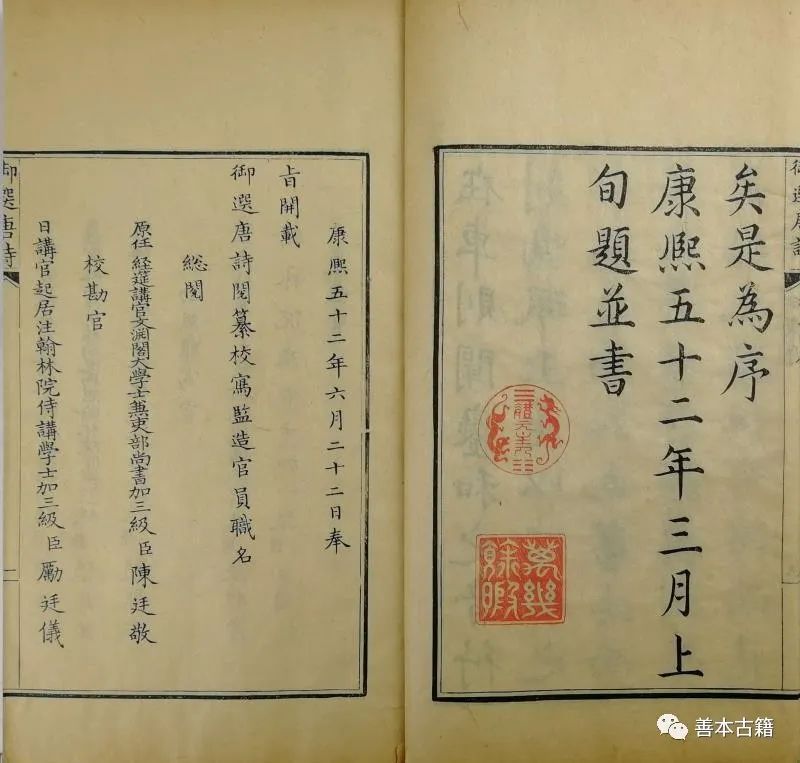 矣是為序
康熙五十二年三月上
旬題並書
體元主人
萬幾餘暇
御選唐詩
康熙五十二年六月二十二日奉
旨開載
御選唐詩閱纂校寫監造官員職名
總閱
原任經筵講官文淵閣大學士兼吏部尚書加三級臣陳廷敬
校勘官
日講官起居注翰林院侍講學士加三級臣勵廷儀
御選唐詩
一
善本古籍